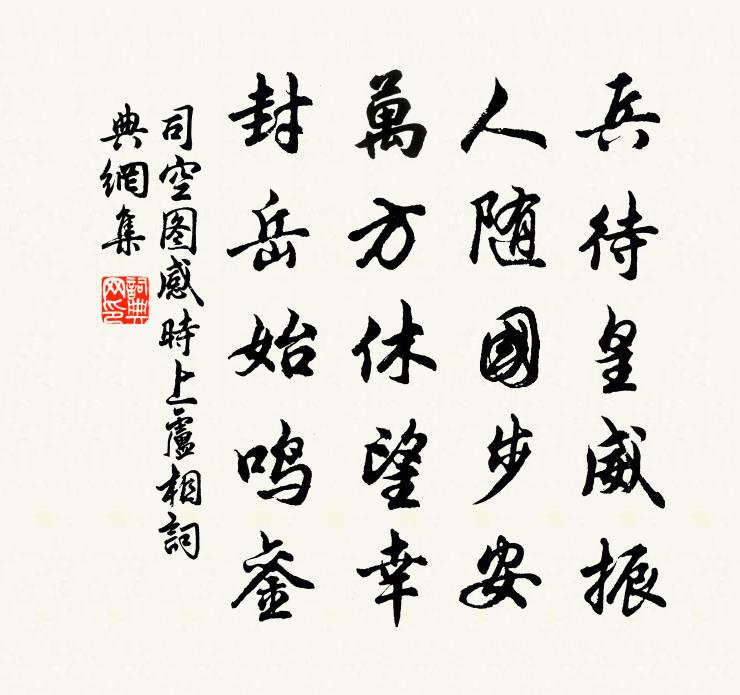 兵待皇威振
人随國步安
萬方休望幸
封岳始鸣銮
司空图感時上盧相詞
典網集
詞典网印